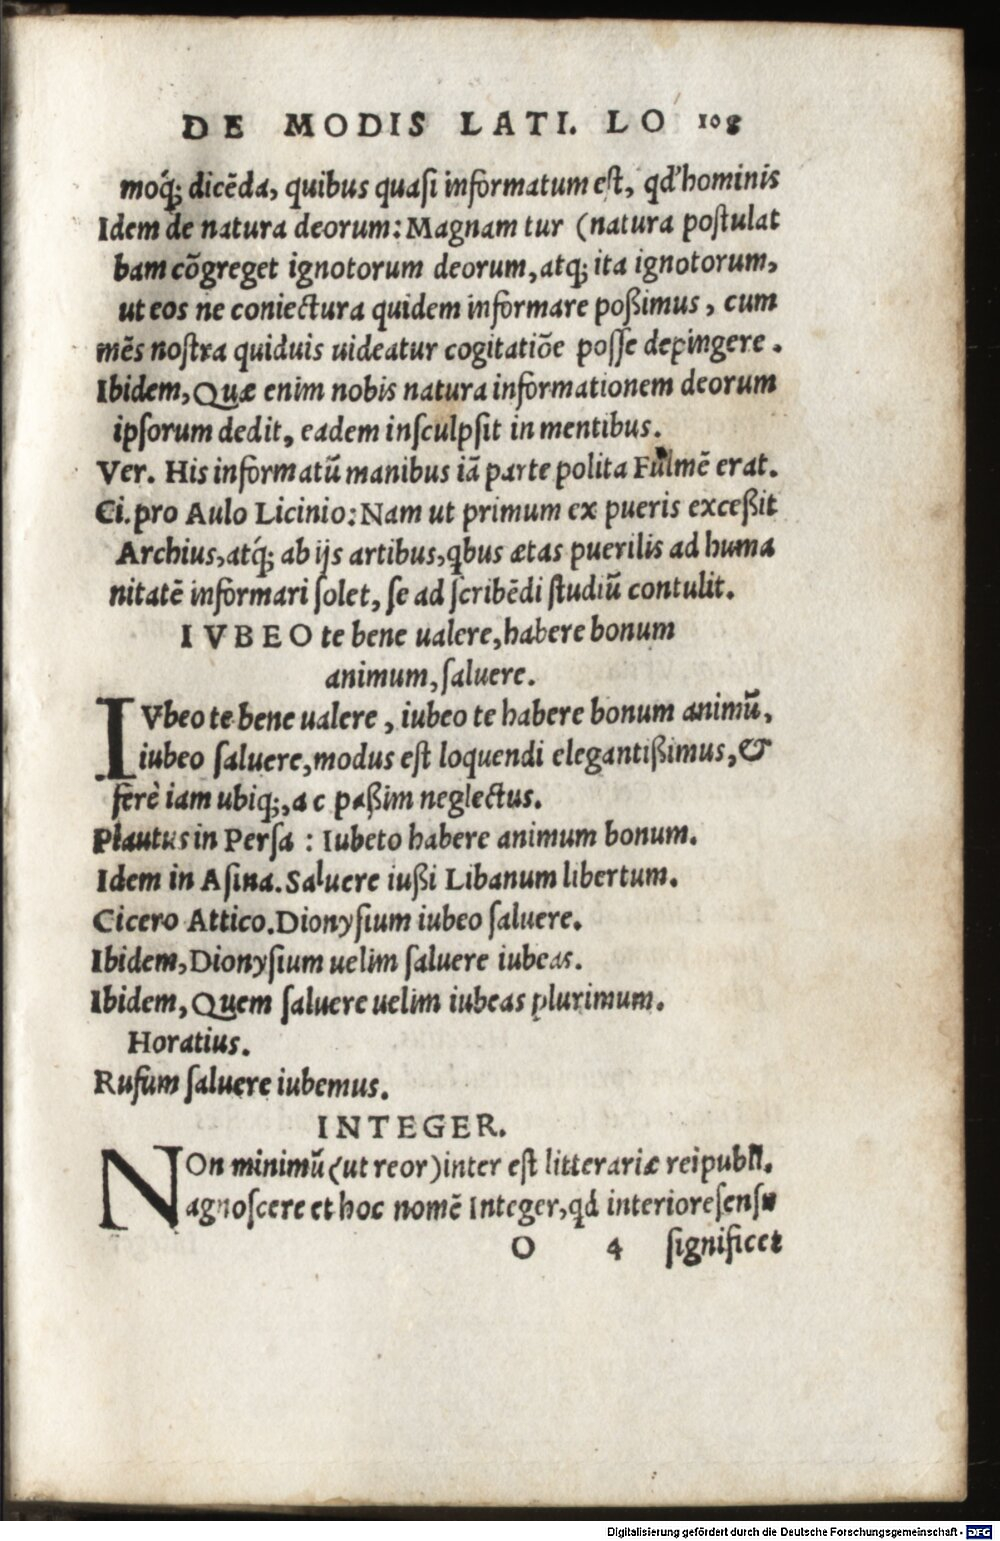 DE MODIS LATI. LO 108
moq́; dicēda, quibus quasi informatum est, qd' hominis
Idem de natura deorum: Magnam tur (natura postulat
bam cōgreget ignotorum deorum, atq; ita ignotorum,
ut eos ne coniectura quidem informare poßimus, cum
mēs nostra quiduis uideatur cogitatiōe posse depingere.
Ibidem, Quæ enim nobis natura informationem deorum
ipsorum dedit, eadem insculpsit in mentibus.
Ver. His informatū manibus iā parte polita Fulmē erat.
Ci. pro Aulo Licinio: Nam ut primum ex pueris exceßit
Archius, atq́; ab ijs artibus, qbus ætas puerilis ad huma
nitatē informari solet, se ad scribēdi studiū contulit.
IVBEO te bene ualere, habere bonum
animum, saluere.
IVbeo te bene ualere, iubeo te habere bonum animū,
iubeo saluere, modus est loquendi elegantißimus, &
ferè iam ubiq;, ac paßim neglectus.
Plautus in Persa : Iubeto habere animum bonum.
Idem in Asina. Saluere iußi Libanum libertum.
Cicero Attico. Dionysium iubeo saluere.
Ibidem, Dionysium uelim saluere iubeas.
Ibidem, Quem saluere uelim iubeas plurimum.
Horatius.
Rufum saluere iubemus.
INTEGER.
NOn minimū (ut reor) inter est litterariæ reipubli.
agnoscere et hoc nomē Integer, qd interiore sensu
O 4 significet
Digitalisierung gefördert durch die Deutsche Forschungsgemeinschaft - DFG